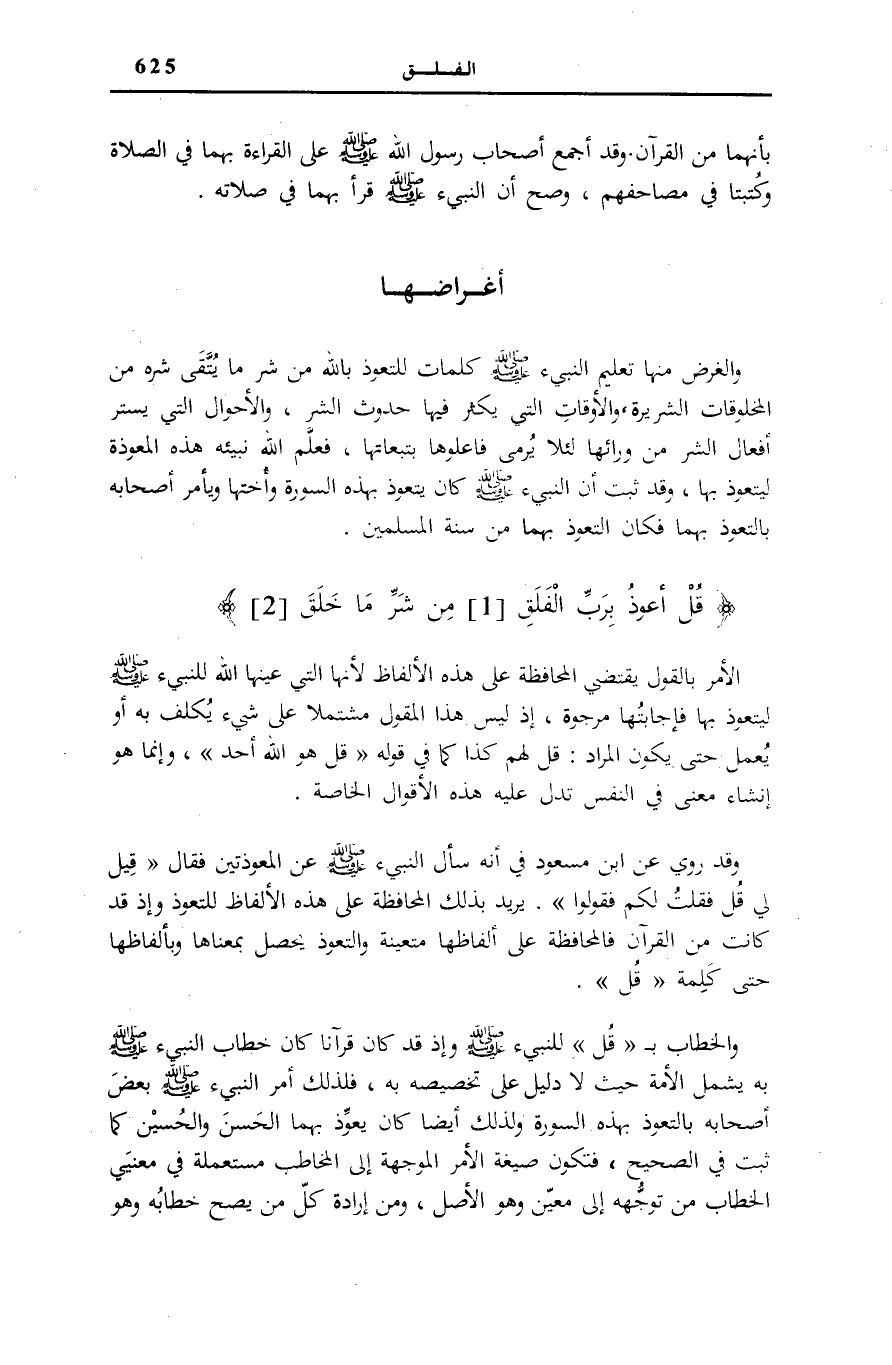 الفلق 625
بأنهما من القرآن. وقد أجمع أصحاب رسول الله ﷺ على القراءة بهما في الصلاة
وكُتبتا في مصاحفهم ، وصح أن النبيء ﷺ قرأ بهما في صلاته .
أغراضها
والغرض منها تعليم النبيء ﷺ كلمات للتعوذ بالله من شر ما يُتَّقَى شره من
المخلوقات الشريرة، والأوقاتِ التي يكثر فيها حدوث الشر ، والأحوال التي يستر
أفعال الشر من ورائها لئلا يُرمى فاعلوها بتبعاتها ، فعلَّم الله نبيئه هذه المعوذة
ليتعوذ بها ، وقد ثبت أن النبيء ﷺ كان يتعوذ بهذه السورة وأختها ويأمر أصحابه
بالتعوذ بهما فكان التعوذ بهما من سنة المسلمين .
﴿ قُلْ أعوذُ بِرَبِّ الْفَلَقِ [1] مِن شَرِّ مَا خَلَقَ [2] ﴾
الأمر بالقول يقتضي المحافظة على هذه الألفاظ لأنها التي عينها الله للنبيء ﷺ
ليتعوذ بها فإجابتُها مرجوة ، إذ ليس هذا المقول مشتملا على شيء يُكلف به أو
يُعمل حتى يكون المراد : قل لهم كذا كما في قوله « قل هو الله أحد » ، وإنما هو
إنشاء معنى في النفس تدل عليه هذه الأقوال الخاصة .
وقد روي عن ابن مسعود في أنه سأل النبيء ﷺ عن المعوذتين فقال « قِيل
لي قُل فقلتُ لكم فقولوا » . يريد بذلك المحافظة على هذه الألفاظ للتعوذ وإذ قد
كانت من القرآن فالمحافظة على ألفاظها متعينة والتعوذ يحصل بمعناها وبألفاظها
حتى كَلِمة « قُل » .
والخطاب بـ « قُل » للنبيء ﷺ وإذ قد كان قرآنا كان خطاب النبيء ﷺ
به يشمل الأمة حيث لا دليل على تخصيصه به ، فلذلك أمر النبيء ﷺ بعضَ
أصحابه بالتعوذ بهذه السورة ولذلك أيضا كان يعوِّذ بهما الحَسنَ والحُسيْن كما
ثبت في الصحيح ، فتكون صيغة الأمر الموجهة إلى المخاطب مستعملة في معنيَي
الخطاب من توجُّهه إلى معيّن وهو الأصل ، ومن إرادة كلّ من يصح خطابُه وهو